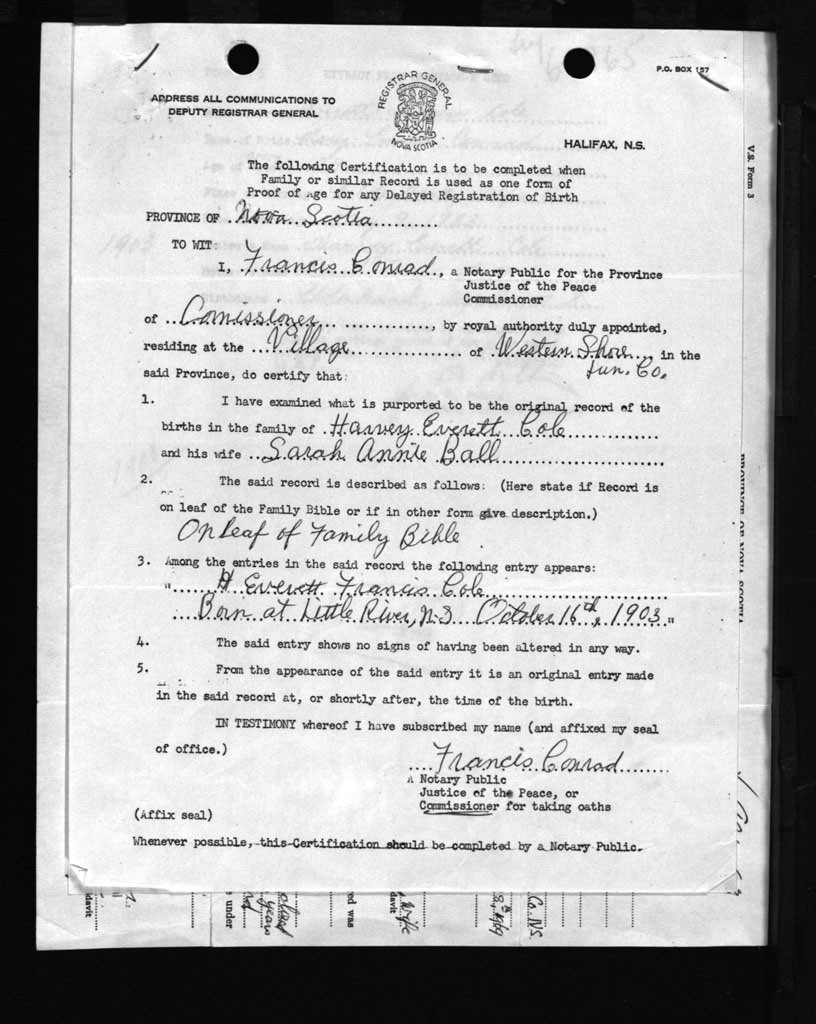 P.O. BOX 157
REGISTRAR GENERAL
NOVA SCOTIA
ADDRESS ALL COMMUNICATIONS TO
DEPUTY REGISTRAR GENERAL
HALIFAX, N.S.
V.S. Form 3
The following Certification is to be completed when
Family or similar Record is used as one form of
Proof of Age for any Delayed Registration of Birth
PROVINCE OF Nova Scotia
TO WIT
I, Francis Conrad, a Notary Public for the Province
Justice of the Peace
Commissioner
of Comissioner, by royal authority duly appointed,
residing at the Village of Western Shore in the
Lun. Co.
said Province, do certify that:
1. I have examined what is purported to be the original record of the
births in the family of Harvey Everett Cole
and his wife Sarah Annie Ball
2. The said record is described as follows: (Here state if Record is
on leaf of the Family Bible or if in other form give description.)
On Leaf of Family Bible
3. Among the entries in the said record the following entry appears:
" H Everett Francis Cole
Born at Little River, N.S October 16th, 1903 "
4. The said entry shows no signs of having been altered in any way.
5. From the appearance of the said entry it is an original entry made
in the said record at, or shortly after, the time of the birth.
IN TESTIMONY whereof I have subscribed my name (and affixed my seal
of office.)
Francis Conrad
A Notary Public
Justice of the Peace, or
Commissioner for taking oaths
(Affix seal)
Whenever possible, this Certification should be completed by a Notary Public.
davit
e under
years
ed was
davit
Wife
Co. N.S.